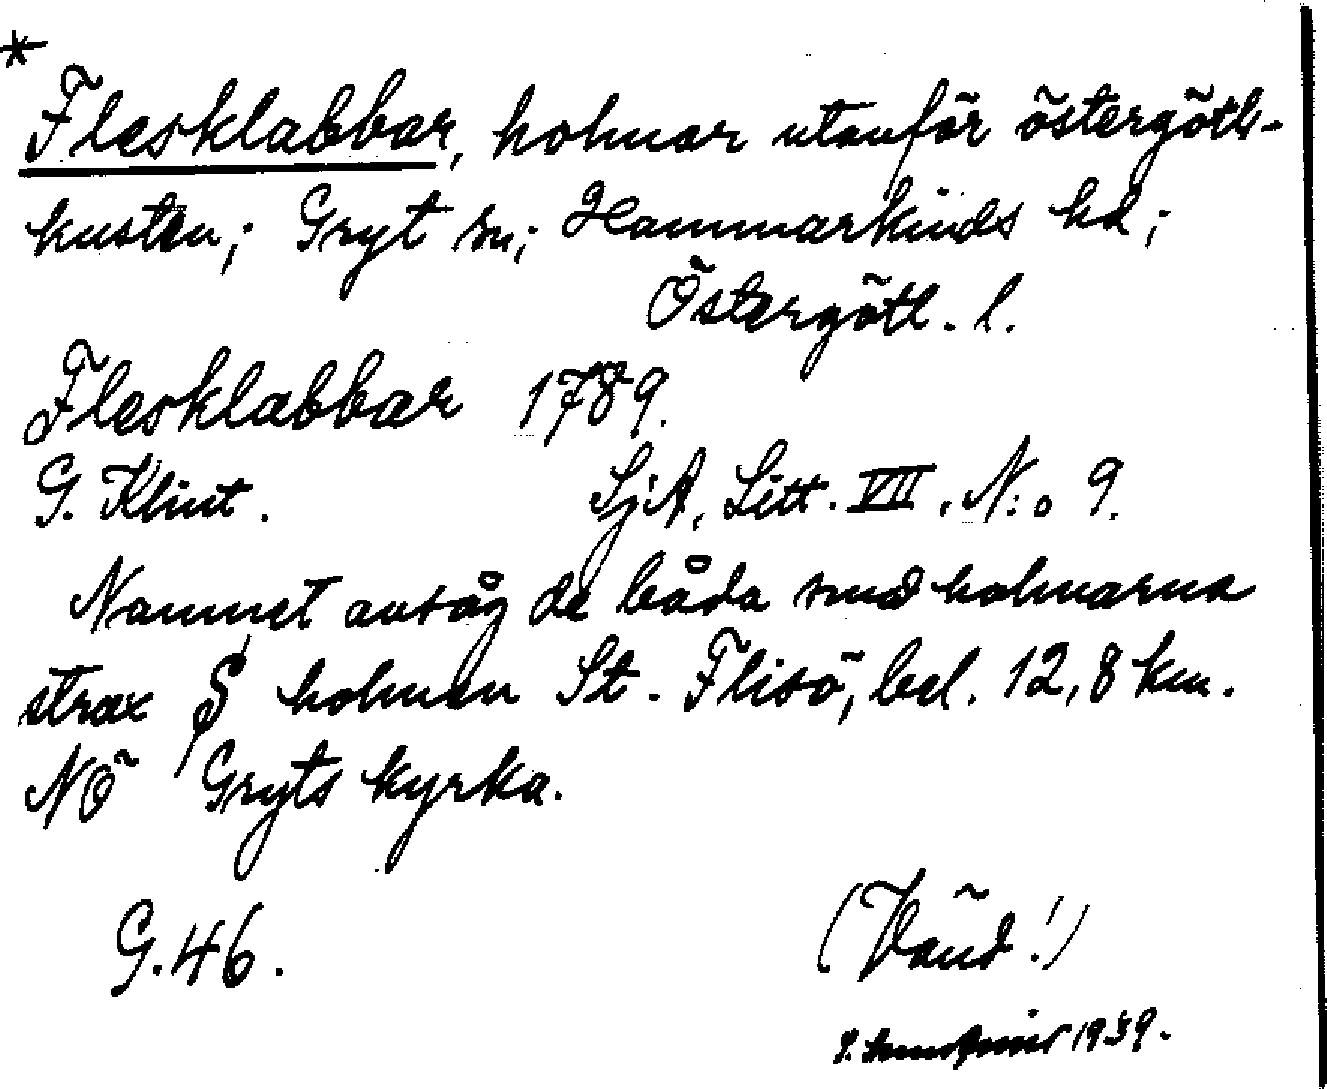 *
Flesklabbar, holmar utanför östergötl-
kusten; Gryt sn; Hammarkinds hd;
Östergötl. l.
Flesklabbar 1789.
G. Klint. SjA, Litt. VII. N:o 9.
Namnet avsåg de båda små holmarna
strax S holmen St. Flisö, bel. 12,8 km.
NÖ Gryts kyrka.
G.46. (Vänd!)
1939.